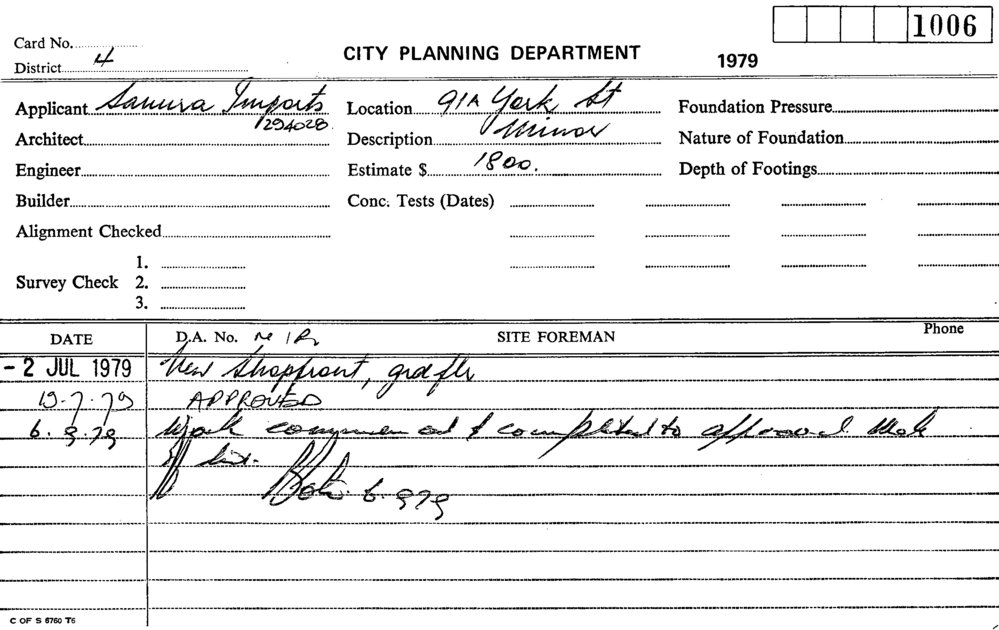 1006
Card No.
CITY PLANNING DEPARTMENT 1979
District 4
Applicant Samura Imports Location 91A York St Foundation Pressure
294028
Architect Description Minor Nature of Foundation
Engineer Estimate $ 1800. Depth of Footings
Builder Conc. Tests (Dates)
Alignment Checked
1.
Survey Check 2.
3.
DATE D.A. No. SITE FOREMAN Phone
- 2 JUL 1979 New Shopfront, grd flr
19.7.79 APPROVED
6.9.79 Work commenced & completed to approval
6.9.79
C OF S 6760 T6